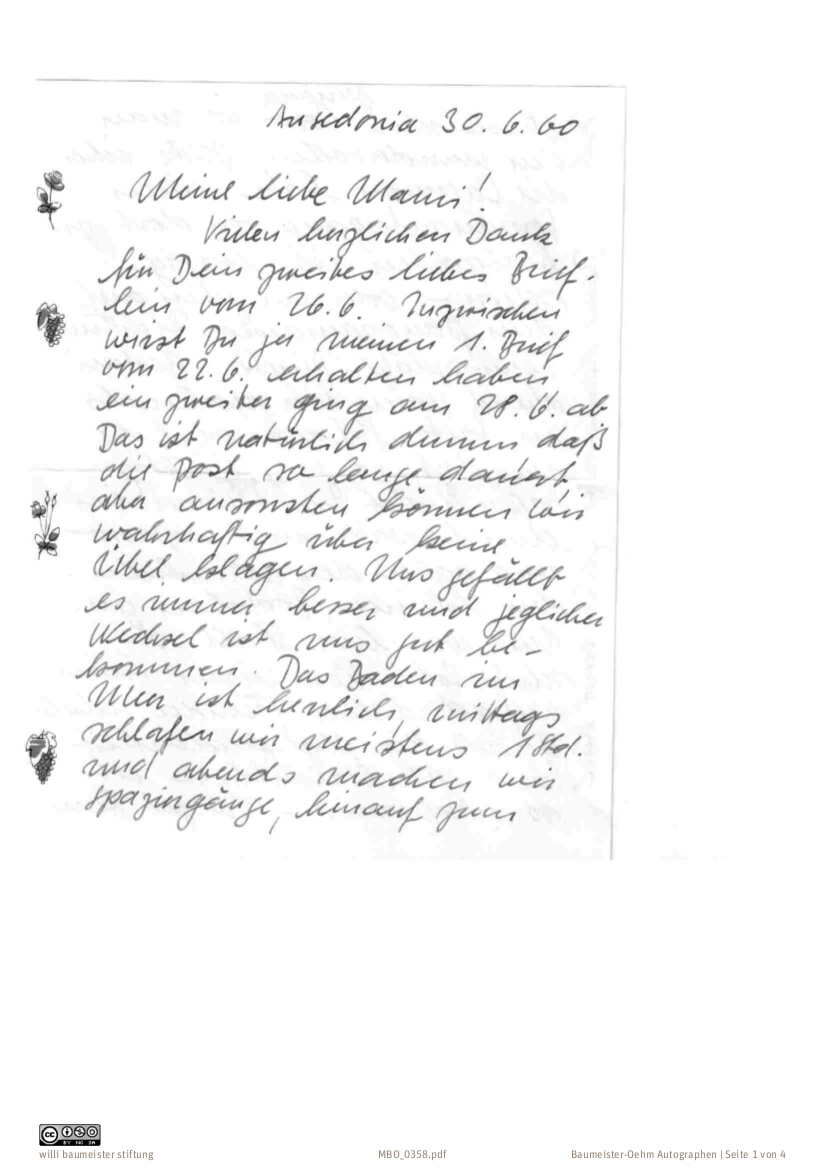 Ansedonia 30. 6. 60
Meine liebe Mami!
Vielen herzlichen Dank
für Dein zweites liebes Brief-
lein vom 26.6. Inzwischen
wirst Du ja meinen 1. Brief
vom 22. 6. erhalten haben
ein zweiter ging am 28. 6. ab
Das ist natürlich dumm daß
die Post so lange dauert
aber ansonsten können wir
wahrhaftig über keine
Übel klagen. Uns gefällt
es immer besser und jeglicher
Wechsel ist uns gut be-
kommen. Das Baden im
Meer ist herrlich, mittags
schlafen wir meistens 1 Std.
und abends machen wir
Spaziergänge, hinauf zum
CC BY NC SA
willi baumeister stiftung
MBO_0358.pdf
Baumeister-Oehm Autographen | Seite 1 von 4